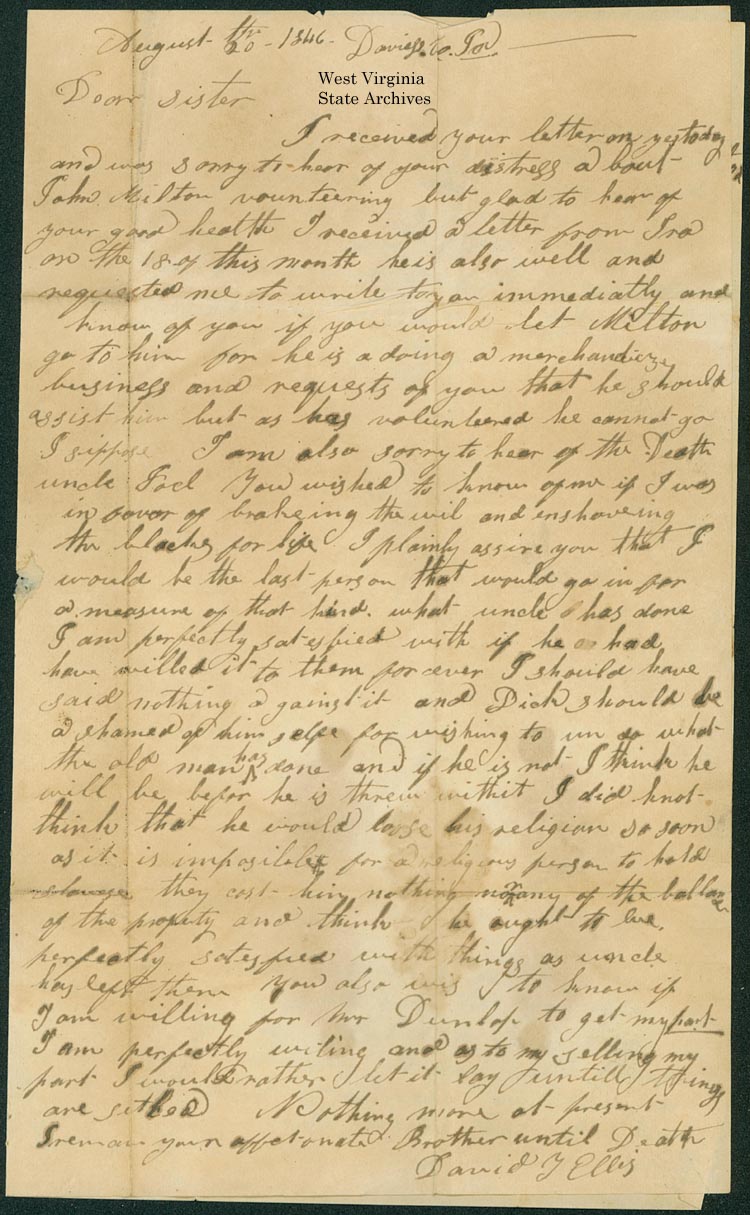 August 20th 1846 Daviess. Co.
West Virginia
State Archives
Dear sister
I received your letter on yestoday
and was sorry to hear of your distress a bout
John Milton vounteering but glad to hear of
your good health I received a letter from Ira
on the 18 of this month he is also well and
requested me to write to you immediatly and
know of you if you would let Milton
go to him for he is a doing a merchandize
business and requests of you that he should
assist him but as has volunteered he cannot go
I suppose I am also sorry to hear of the Death
uncle You wished to know of me if I was
in favor of brakeing the wil and enslaveing
the blacks for life I plainly assire you that I
would be the last person that would go in for
a measure of that kind. what uncle has done
I am perfectly satesfied with if he had
have willed it to them forever I should have
said nothing a gainst it and Dick should be
a shamed of him selfe for wishing to un do what
the old man has done and if he is not I think he
will be befor he is threw withit I did knot
think that he would loose his religion so soon
as it is imposible for a religious person to hold
they cost him nothing nor any of the ballance
of the property and think he ought to be
perfectly satesfied with things as uncle
has left them you also wis to know if
I am willing for Mr Dunlop to get my part
I am perfectly willing and as to my selling my
part I would rather let it lay untill things
are setled Nothing more at present
I remain your affectonate Brother until Death
David J Ellis